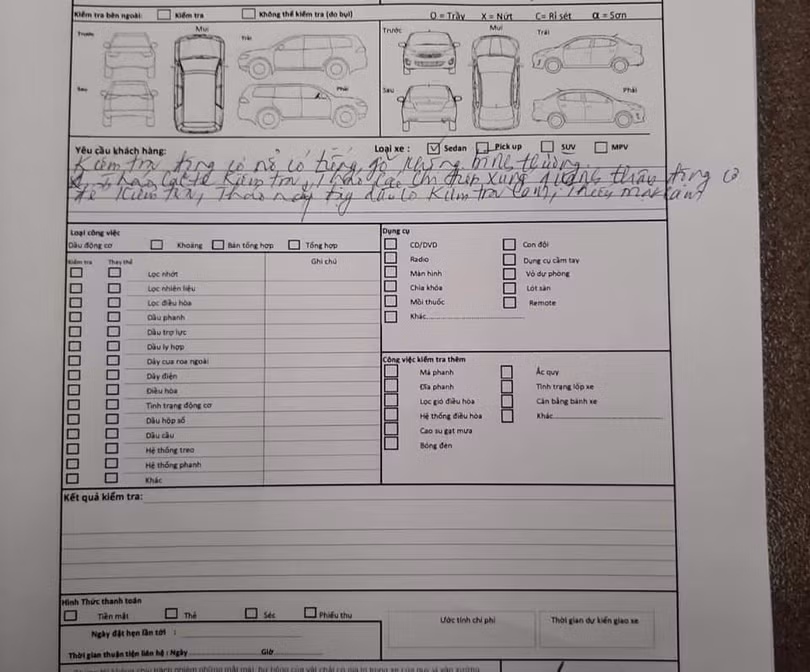 Kiểm tra bên ngoài: Kiểm tra Không thể kiểm tra (do bụi) O = Trầy X = Nứt C= Rỉ sét α = Sơn
Trước Mui Trái Trước Mui Trái
Sau Phải Sau Phải
Yêu cầu khách hàng: Loại xe : Sedan Pick up SUV MPV
Kiểm tra động cơ nổ có tiếng gõ không bình thường
kiểm tra, xung quanh thân động cơ
để kiểm tra, Tháo kiểm tra
Loại công việc Dụng cụ
Dầu động cơ Khoáng Bán tổng hợp Tổng hợp
Kiểm tra Thay thế Ghi chú
CD/DVD Con đội
Radio Dụng cụ cầm tay
Màn hình Vỏ dự phòng
Chìa khóa Lót sàn
Mồi thuốc Remote
Khác
Lọc nhớt
Lọc nhiên liệu
Lọc điều hòa
Dầu phanh
Dầu trợ lực
Dầu ly hợp
Dây cua roa ngoài
Dây điện
Điều hòa
Tình trạng động cơ
Dầu hộp số
Dầu cầu
Hệ thống treo
Hệ thống phanh
Khác
Công việc kiểm tra thêm
Má phanh Ắc quy
Đĩa phanh Tình trạng lốp xe
Lọc gió điều hòa Cân bằng bánh xe
Hệ thống điều hòa Khác
Cao su gạt mưa
Bóng đèn
Kết quả kiểm tra:
Hình Thức thanh toán
Tiền mặt Thẻ Séc Phiếu thu
Ước tính chi phí Thời gian dự kiến giao xe
Ngày đặt hẹn lần tới :
Thời gian thuận tiện liên hệ : Ngày Giờ